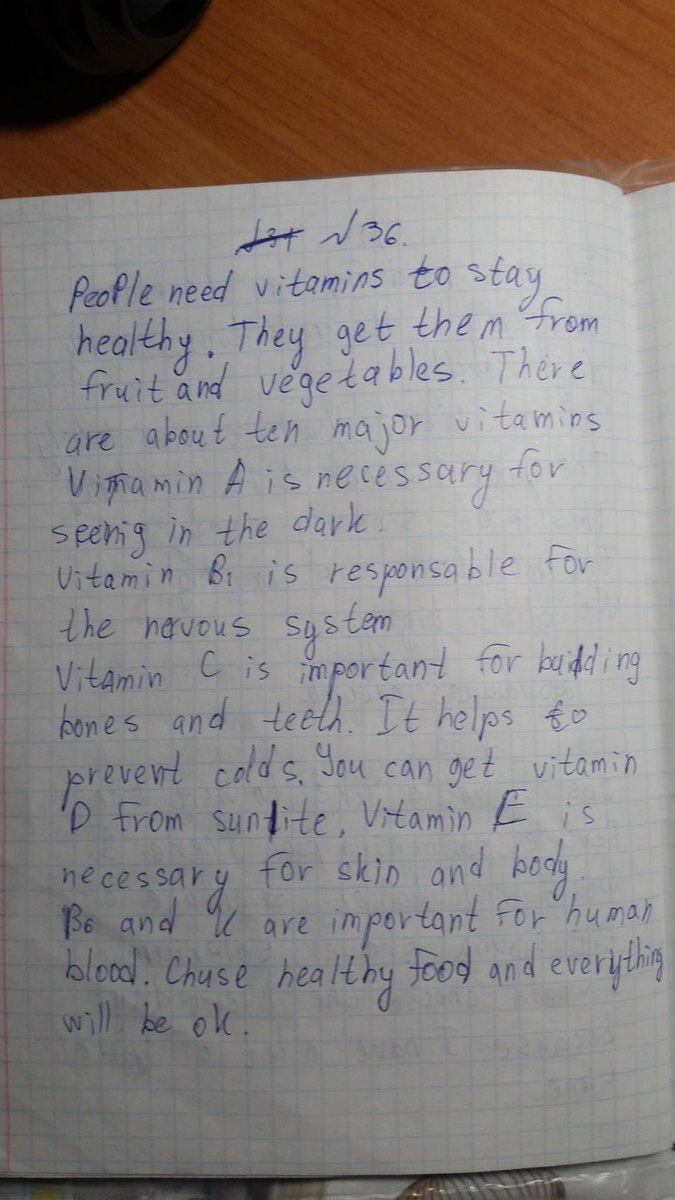 № 36.
People need vitamins to stay
healthy. They get them from
fruit and vegetables. There
are about ten major vitamins
Vitamin A is necessary for
seenig in the dark.
Vitamin B1 is responsable for
the nervous system
Vitamin C is important for building
bones and teeth. It helps to
prevent colds. You can get vitamin
D from sunlite. Vitamin E is
necessary for skin and body.
B6 and K are important for human
blood. Chuse healthy food and everything
will be ok.